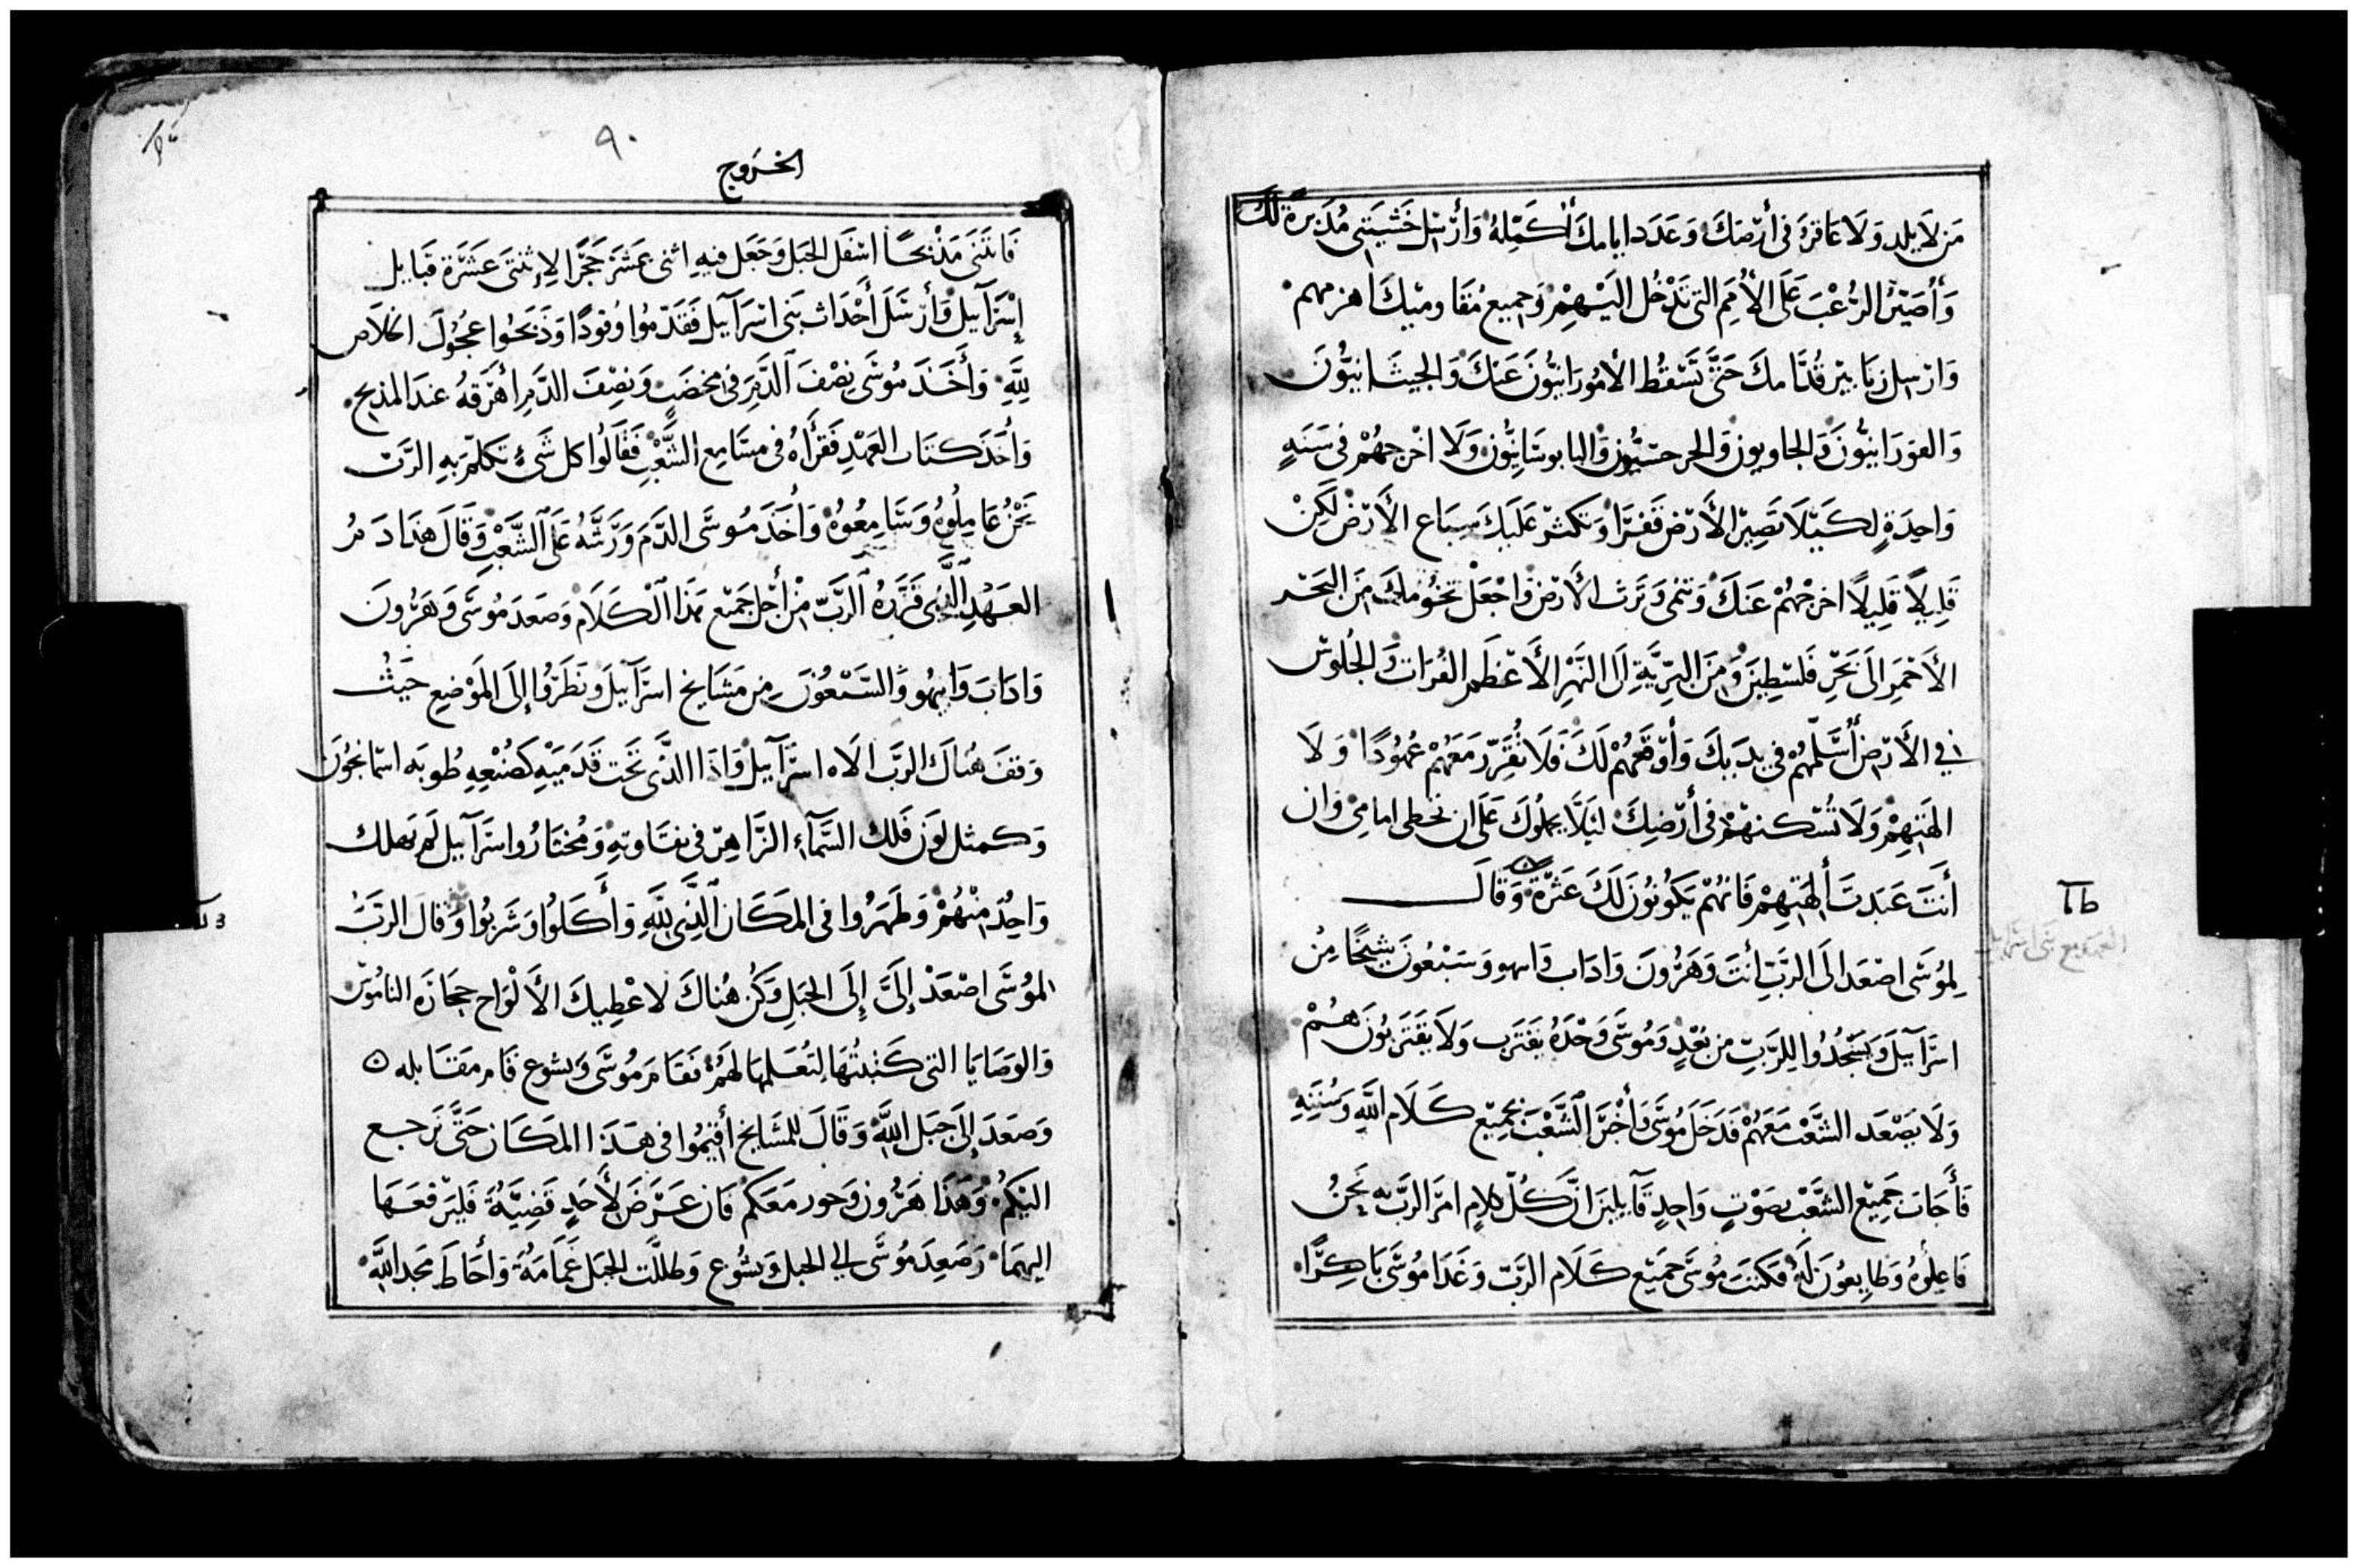 مَن لَا يلد وَلَا عَاقرة في أَرْضِكَ وَعَدَد ايامك أكَمِّلهُ وَأُرْسِل خَشيَتي مُدَبرةً لكَ
وَأُصَيّرُ الرُّعْبَ عَلى الأُمَم التي تَدْخُل اليْهِمْ وَجميعُ مُقَاوميْكَ اهزمهم
وَارْسل زنابير قُدَّامكَ حَتَّى تَسْقُط الأمُورَانيُّونَ عَنكَ وَالجيثَانيُّونَ
وَالفوَرَانيُّونَ وَالحاويون وَالجرجسيُّون وَاليابوسَانِيُّون وَلَا اخْرجهُمْ في سَنَةٍ
وَاحِدَةٍ لكَيْلَا تَصِيرَ الأَرْض قَفرًا وَتكثرْ عَلَيكَ سِبَاع الأَرْض لَكِنْ
قَلِيلاً قَلِيلاً اخرجْهُمْ عَنكَ وَتنمى وَتَرَث الأَرْض وَاجْعَلْ تخُومكَ مِنَ البَحْر
الأَحْمَرِ إلَى بَحْرِ فَلسْطِينَ وَمِنَ البَرِّيَّةِ إلَى النَّهْرِ الأَعْظَم الفُرَات وَالجُلوسْ
في الأَرْضِ أُسَلّمهُمْ في يدَيكَ وَأَدْفَعُهُمْ لَكَ فَلَا تُقَرِّر مَعَهُمْ عُهُودًا وَلَا
الهَتِهِمْ وَلَا تُسْكنهُمْ في أَرْضِكَ لئلَّا يحملُوكَ عَلَى ان تخطى امامي وَان
أَنتَ عَبَدتَ ألِهَتِهِمْ فَانهُمْ يَكُونُونَ لَكَ عَثرَةً وَقالَ
لِمُوسَى اصْعَد الَى الرَبِّ أنتَ وَهَرُونَ وَادَاب وَابيهو وَسَبْعُونَ شَيْخًا مِنْ
اسرَآييلَ وَيَسْجُدُوا لِلرَّبِّ من بُعْدٍ وَمُوسَى وَحْدَهُ يَقتَرب وَلَا يَقتَربُونَ هُمْ
وَلَا يَصْعَد الشَّعْبْ مَعَهُمْ فدَخَلَ مُوسَى وَأَخْبَرَ الشَّعْبَ بجَمِيْع كَلَامِ اللَّهِ وَسُننِهِ
فَأَجَابَ جَمِيْع الشَّعْبْ بصَوْتٍ وَاحدٍ قَآيلينَ انَّ كُلّ كلامٍ امَرَ الرَبّ به نَحْنُ
فَاعِلُوهُ وَطَايعُونَ لَهُ فَكتَبَ مُوسَى جَمِيْع كَلَام الرَبّ وَغَدَا مُوسَى بَاكِرًا
٦٦
العهد مع بني اسرائيل
٩٠
الخروج
فَابتَنَى مَذْبحًا اسْفَل الجَبَل وَجَعَل فيهِ اثنى عَشَرَ حَجَرًا لِإثنتَى عَشَرَة قَبَايل
إسْرَآييل وَأَرْسَلَ أَحْدَاث بَني اسْرَآييل فَقَدَّمُوا وُقودًا وَذَبَحُوا عجُول الخلَاص
لِلَّهِ وَأَخَذَ مُوسَى نصْفَ الدَّمِ في مِخضَبٍ وَنصْفَ الدَّمِ أهْرَقهُ عندَ المذبح
وَأَخَذَ كتَاب العَهْدِ فَقَرَأَهُ في مسَامِع الشَّعْبِ فَقَالُوا كل شَيءٌ تكلَّمَ بهِ الرَّبّ
نَحْنُ عَاملُوهُ وَسَامِعُوهُ وَأَخَذَ مُوسَى الدَّمَ وَرَشَّهُ عَلَى الشَّعْبِ وَقَالَ هَذَا دَمُ
العَهْدِ الَّذِي قرَّرَهُ الرَبّ مِنْ أَجْل جَمِيْع هَذَا الكَلَام وَصَعَدَ مُوسَى وَهَرُونَ
وَادَابَ وَابيهو وَالسَّبْعُونَ مِن مَشَايخ اسرَآييلَ وَنَظَرُوا إلَى المَوْضِعِ حَيْثُ
وَقفَ هُنَاكَ الرَبّ الَاه اسرَآييل وَاذَا الذَّي تَحْت قَدَمَيْهِ كَصُنْعِهِ طُوبَه اسمَانجُونَ
وَكمثل لَوَن فَلك السَّمَآءِ الزَّاهِرْ في نقَاوتهِ وَمُختَارُوا اسرَآييل لَم يَهلك
وَاحِدُ مِنْهُمْ وَظهَرُوا في المَكَان الَّذِي لِلَّهِ وَأَكَلُوا وَشَربُوا وَقالَ الرَبّ
لمُوسَى اصْعَدْ إلَيَّ إلَى الجَبَلِ وَكُن هُنَاكَ لاعْطِيكَ الأَلْوَاح حجَارَة النامُوسْ
وَالوَصَايَا التي كَتَبْتُهَا لتُعَلمهَا لهَمُ فَقَامَ مُوسَى وَيشوع قَام مَقَابله
وَصَعَدَ إلَى جَبَل اللَّهِ وَقَالَ للمَشَايخ أَقيمُوا في هَذَا المَكَان حَتَّى نَرجع
اليكُمْ وَهَذَا هَرُون وَحور مَعَكم فَان عَرَضَ لأَحَدٍ قَضِيَّةُ فَليَرْفعَهَا
اليهِمَا وَصَعِدَ مُوسَى الي الجبل وَيشُوع وَظللَّت الجَبَل غَمَامَةُ وَأَحَاطَ مَجد اللَّهِ